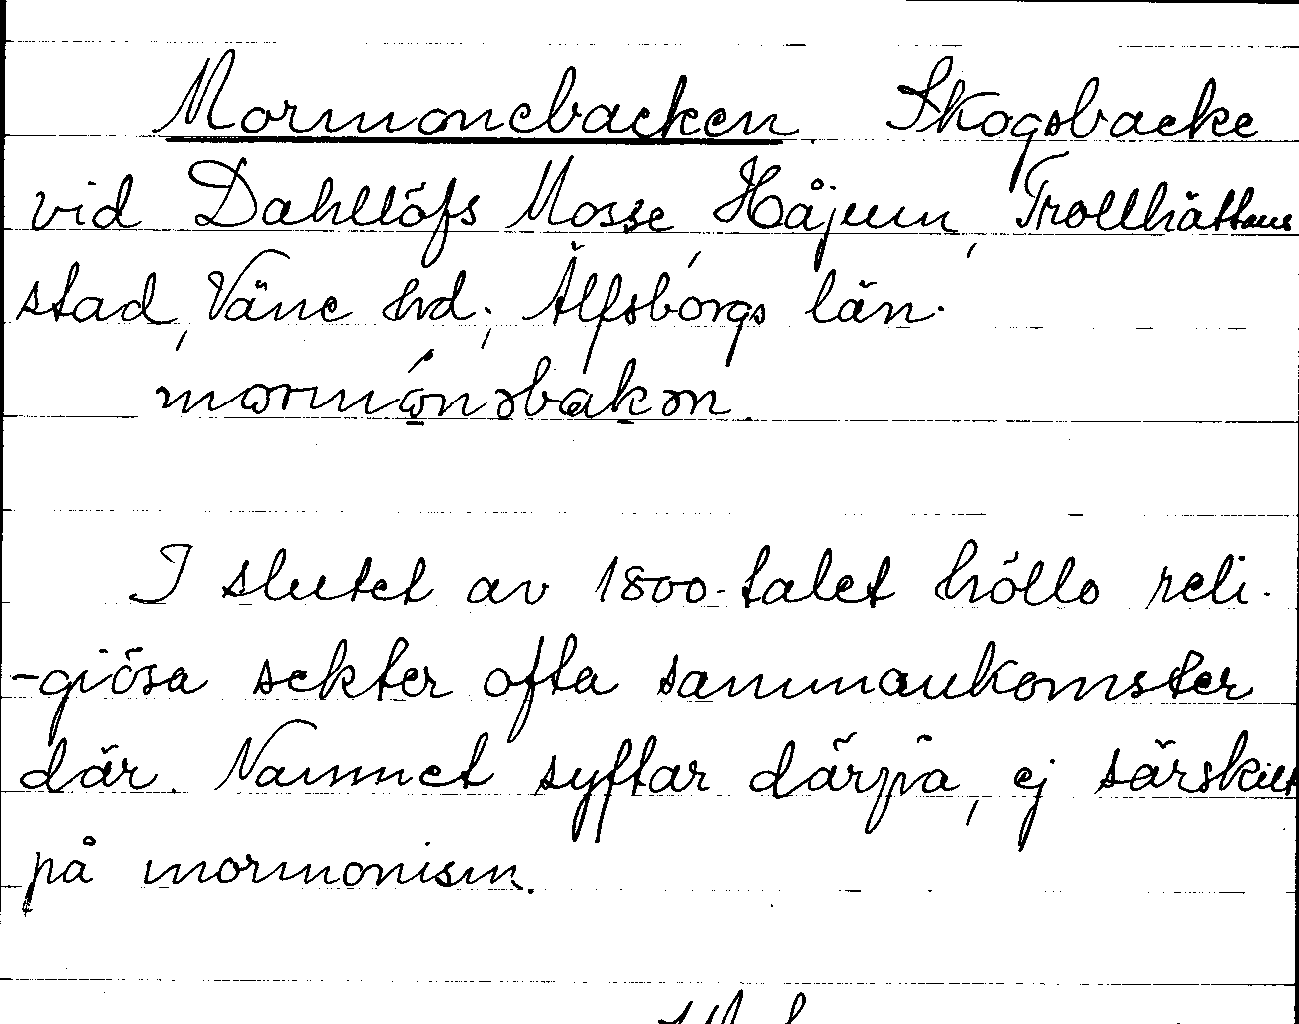 Mormonebacken. Skogsbacke
vid Dahllöfs Mosse, Håjum, Trollhättans
stad, Väne hd., Älfsborgs län.
mormónəbakən.
I slutet av 1800-talet höllo reli-
-giösa sekter ofta sammankomster
där. Namnet syftar därpå, ej särskilt
på mormonism.